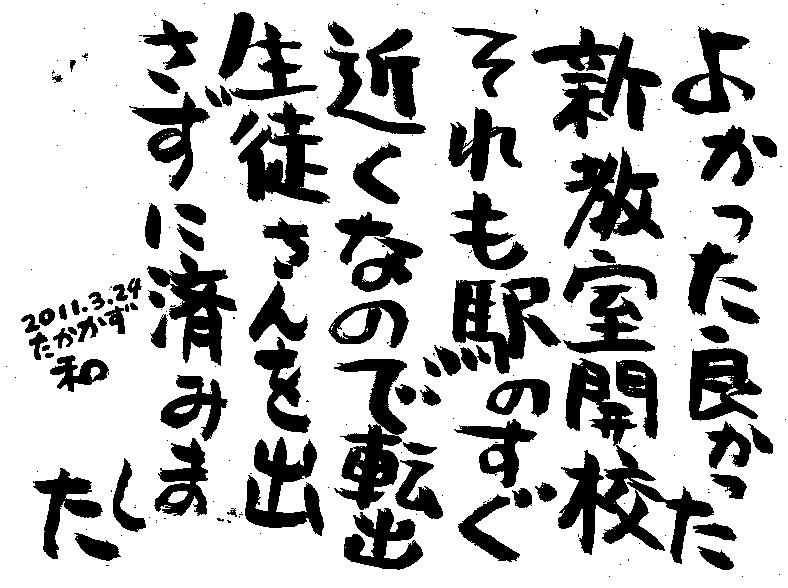 よかった良かった
新教室開校
それも駅のすぐ
近くなので転出
生徒さんを出
さずに済みま
した
2011.3.24
たかかず
和